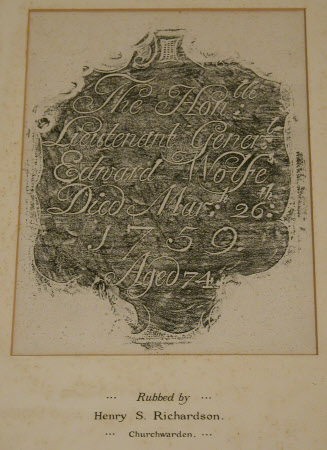 The Hon.ble
Lieutenant Gener.l
Edward Wolfe
Died Mar.ch 26.th
1759
Aged 74
··· Rubbed by ···
Henry S. Richardson.
··· Churchwarden. ···